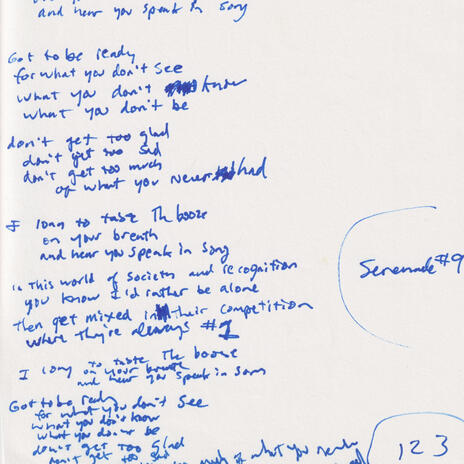 and hear you speak in song
Got to be ready
for what you don't see
what you don't know
what you don't be
don't get too glad
don't get too sad
don't get too much
of what you never had
I long to taste The booze
on your breath
and hear you speak in song
in this world of society and recognition
you know I'd rather be alone
Then get mixed in their competition
where they're always #1
I long to taste The booze
on your breath
and hear you speak in song
Got to be ready
for what you don't see
what you don't know
what you don't be
don't get too glad
don't get too sad
much of what you never
Serenade #9
123